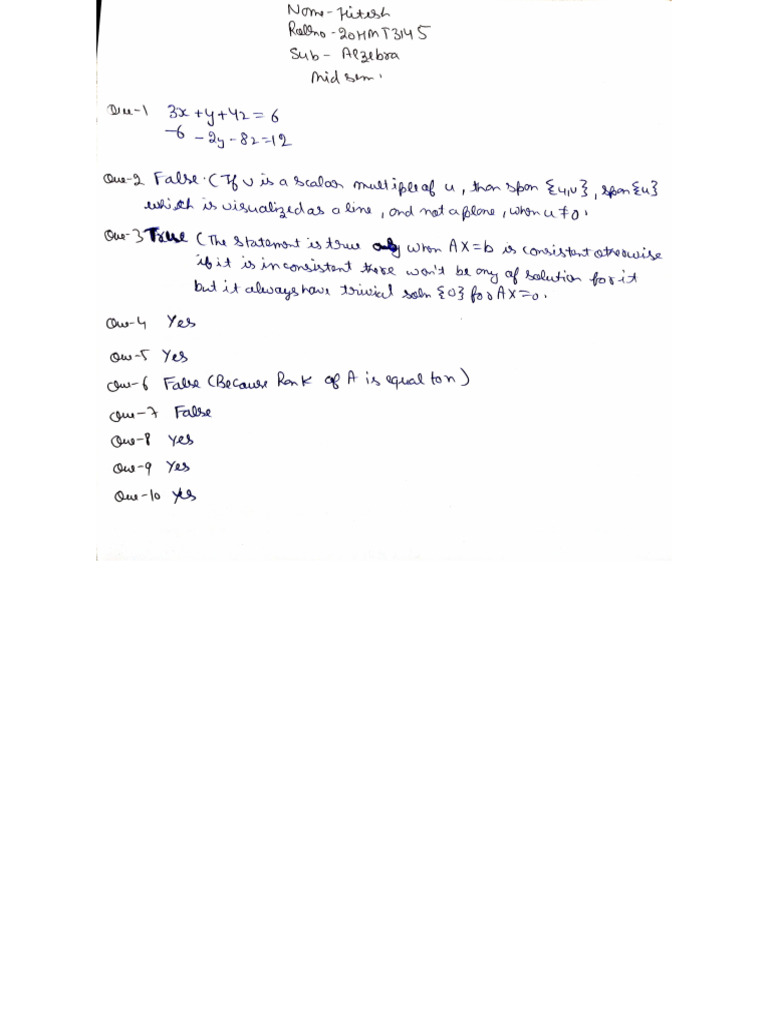 Name-Hitesh
Rollno-20HMT3145
Sub- Algebra
Mid sem.
Que-1 3x+y+4z=6
-6 -2y-8z=12
Que-2 False.(If v is a scalar multiple of u, then span {u,v}, span{u}
which is visualized as a line, and not a plane, when u≠0.
Que-3 True (The statement is true only when AX=b is consistent otherwise
if it is inconsistent there won't be any of solution for it
but it always have trivial soln {0} for AX=0.
Que-4 Yes
Que-5 Yes
Que-6 False (Because Rank of A is equal to n)
Que-7 False
Que-8 Yes
Que-9 Yes
Que-10 Yes